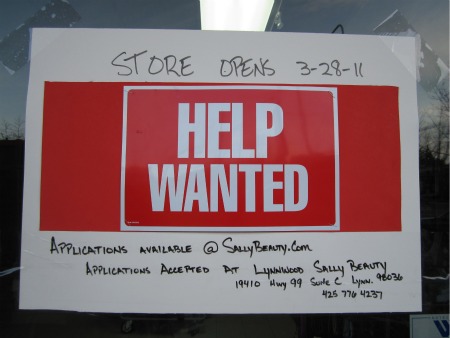 STORE OPENS 3-28-11
HELP
WANTED
APPLICATIONS AVAILABLE @ SALLYBEAUTY.COM
APPLICATIONS ACCEPTED AT LYNNWOOD SALLY BEAUTY
19410 HWY 99 SUITE C LYNN. 98036
425 776 4237